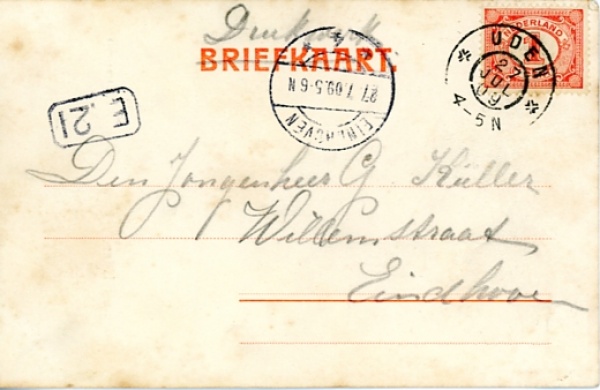 Drukwerk
BRIEFKAART.
NEDERLAND
UDEN
27
JUL
09
4-5N
27.7.09.5-6N
EINDHOVEN
E.21
Den Jongenheer G. Küller
Willemstraat
Eindhoven